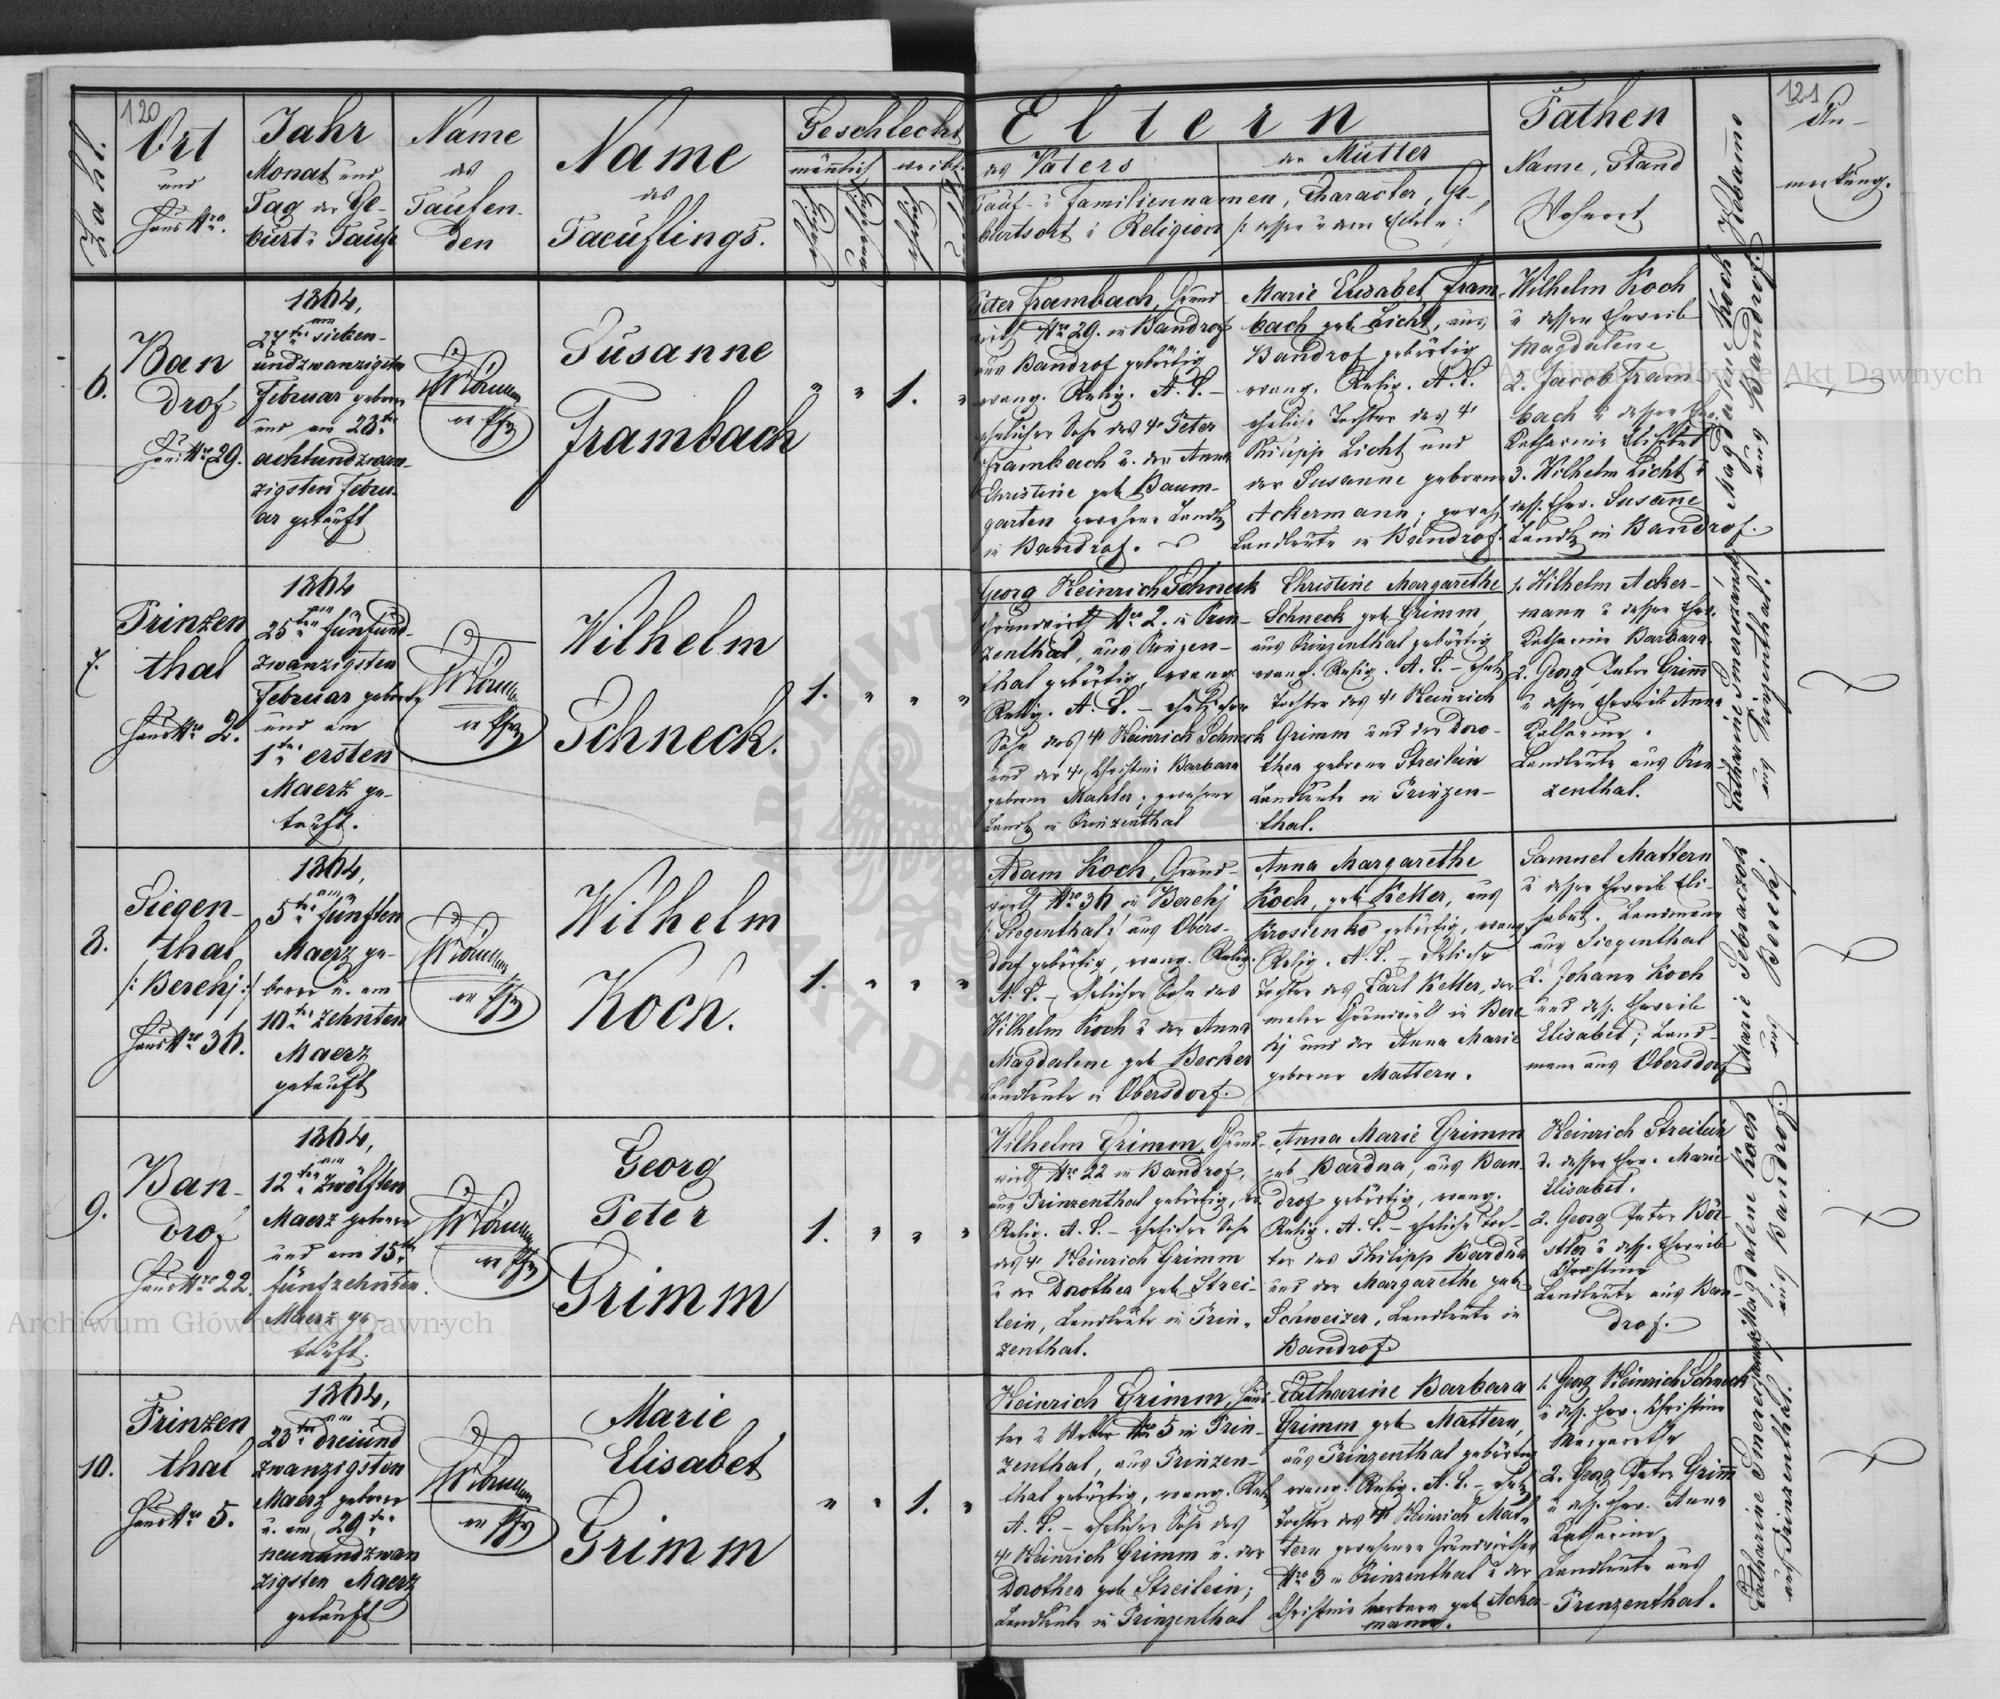 120
121
Zahl.
Ort
und
Haus Nro.
Jahr
Monat und
Tag der Ge-
burt u Taufe
Name
des
Taufen-
den
Name
des
Taeuflings.
Geschlecht
männlich
weibl.
Eltern
des Vaters
der Mutter
Tauf- u Familiennamen, Character, Ge-
burtsort u Religion
Pathen
Name, Stand
Wohnort
Hebamme
An-
merkung.
6.
Ban
drof
Haus Nro 29.
1864,
am
27ten sieben-
undzwanzigsten
Februar geboren
und am 28ten
achtundzwan-
zigsten Febru-
ar getauft
Susanne
Frambach
" " 1. "
Peter Frambach, Grund
wirth Nro 29. in Bandrof
aus Bandrof gebürtig
evang. Relig. A. C. –
ehelicher Sohn des Peter
Frambach u. der Anna
Christine geb Baum-
garten gewesene Landl.
in Bandrof.
Marie Elisabet Fram-
bach geb Licht, aus
Bandrof gebürtig
evang. Relig. A. C.
eheliche Tochter des
Philipp Licht und
der Susanne geborene
Ackermann; gewes.
Landleute in Bandrof.
Wilhelm Koch
u dessen Eheweib
Magdalene
2. Jacob Fram
bach u dessen Ehew.
Katharine Elisabet
3. Wilhelm Licht u
dess. Ehew. Susanne
Landl. in Bandrof.
Magdalene Koch
aus Bandrof.
7.
Prinzen
thal
Haus Nro 2.
1864
am
25ten fünfund-
zwanzigsten
Februar geboren
und am
1ten ersten
Maerz ge-
tauft.
Wilhelm
Schneck.
1. " " "
Georg Heinrich Schneck
Grundwirth Nro 2. in Prin-
zenthal, aus Prinzen-
thal gebürtig, evang.
Relig. A. C. – ehelicher
Sohn des Heinrich Schneck
und der Christine Barbara
geborene Mahler; gewesene
Landl. in Prinzenthal
Christine Margarethe
Schneck geb Grimm,
aus Prinzenthal gebürtig
evang. Relig. A. C. – ehel.
Tochter des Heinrich
Grimm und der Doro-
thea geborene Streilein
Landleute in Prinzen-
thal.
1. Wilhelm Acker-
mann u dessen Ehew.
Katharine Barbara.
2. Georg Peter Grimm
u dessen Eheweib Anna
Katharine.
Landleute aus Prin-
zenthal.
Catharine
aus Prinzenthal.
8.
Siegen-
thal
/: Berehj :/
Haus Nro 36.
1864,
am
5ten fünften
Maerz ge-
boren u. am
10ten zehnten
Maerz
getauft
Wilhelm
Koch.
1. " " "
Adam Koch, Grund-
wirth Nro 36 in Berehj
/: Siegenthal :/ aus Obers-
dorf gebürtig, evang. Relig.
A. C. – ehelicher Sohn des
Wilhelm Koch u der Anna
Magdalene geb Becher
Landleute in Obersdorf.
Anna Margarethe
Koch, geb Keller, aus
Krosienko gebürtig, evang
Relig. A. C. – eheliche
Tochter des Carl Keller, der-
maler Grundwirth in Bere
hj und der Anna Marie
geborene Mattern.
Samuel Mattern
u dessen Eheweib Eli-
sabet. Landmann
aus Siegenthal
2. Johann Koch
und dess. Eheweib
Elisabet; Land-
mann aus Obersdorf
Marie
aus Berehj.
9.
Ban-
drof
Haus Nro 22.
1864,
am
12ten zwölften
Maerz geboren
und am 15ten
fünfzehnten
Maerz ge-
tauft.
Georg
Peter
Grimm
1. " " "
Wilhelm Grimm, Grund-
wirth Nro 22 in Bandrof,
aus Prinzenthal gebürtig, ev.
Relig. A. C. – ehelicher Sohn
des Heinrich Grimm
u der Dorothea geb Strei-
lein, Landleute in Prin-
zenthal.
Anna Marie Grimm
geb Bardua, aus Ban-
drof gebürtig, evang.
Relig. A. C. – eheliche Toch-
ter des Philipp Bardua
und der Margarethe geb
Schweizer, Landleute in
Bandrof.
Heinrich Streilein
u. dessen Ehew. Marie
Elisabet.
2. Georg Peter Bör-
stler u dess. Eheweib
Christine
Landleute aus Ban-
drof.
Magdalene Koch
aus Bandrof.
10.
Prinzen
thal
Haus Nro 5.
1864,
am
23ten dreiund
zwanzigsten
Maerz geboren
u. am 29ten
neunundzwan
zigsten Maerz
getauft
Marie
Elisabet
Grimm
" " 1. "
Heinrich Grimm, Häus-
ler u Weber Nro 5 in Prin-
zenthal, aus Prinzen-
thal gebürtig, evang. Relig
A. C. – ehelicher Sohn des
Heinrich Grimm u. der
Dorothea geb Streilein;
Landleute in Prinzenthal
Catharine Barbara
Grimm geb Mattern,
aus Prinzenthal gebürtig
evang. Relig. A. C. – ehel.
Tochter des Heinrich Mat-
tern gewesener Grundwirth
Nro 3 in Prinzenthal u der
Christine Barbara geb Acker-
mann.
1. Georg Heinrich Schneck
u dess. Ehew. Christine
Margarethe
2. Georg Peter Grimm
u dess. Ehew. Anna
Katharine,
Landleute aus
Prinzenthal.
Catharine
aus Prinzenthal.
Archiwum Główne Akt Dawnych
Archiwum Główne Akt Dawnych